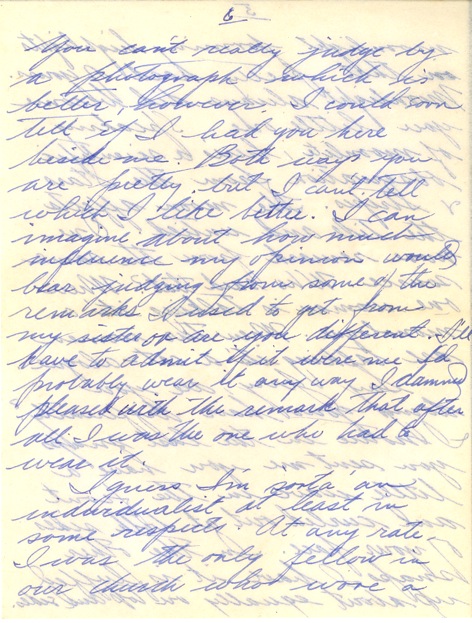 6
You can't really judge by
a photograph which is
better, however. I could soon
tell if I had you here
beside me. Both ways you
are pretty, but I can't tell
which I like better. I can
imagine about how much
influence my opinion would
bear judging from some of the
remarks I used to get from
my sister or are you different. I'll
have to admit if it were me I'd
probably wear it any way I damned
pleased with the remark that after
all I was the one who had to
wear it.
I guess I'm sorta' an
individualist at least in
some respects. At any rate,
I was the only fellow in
our church who wore a